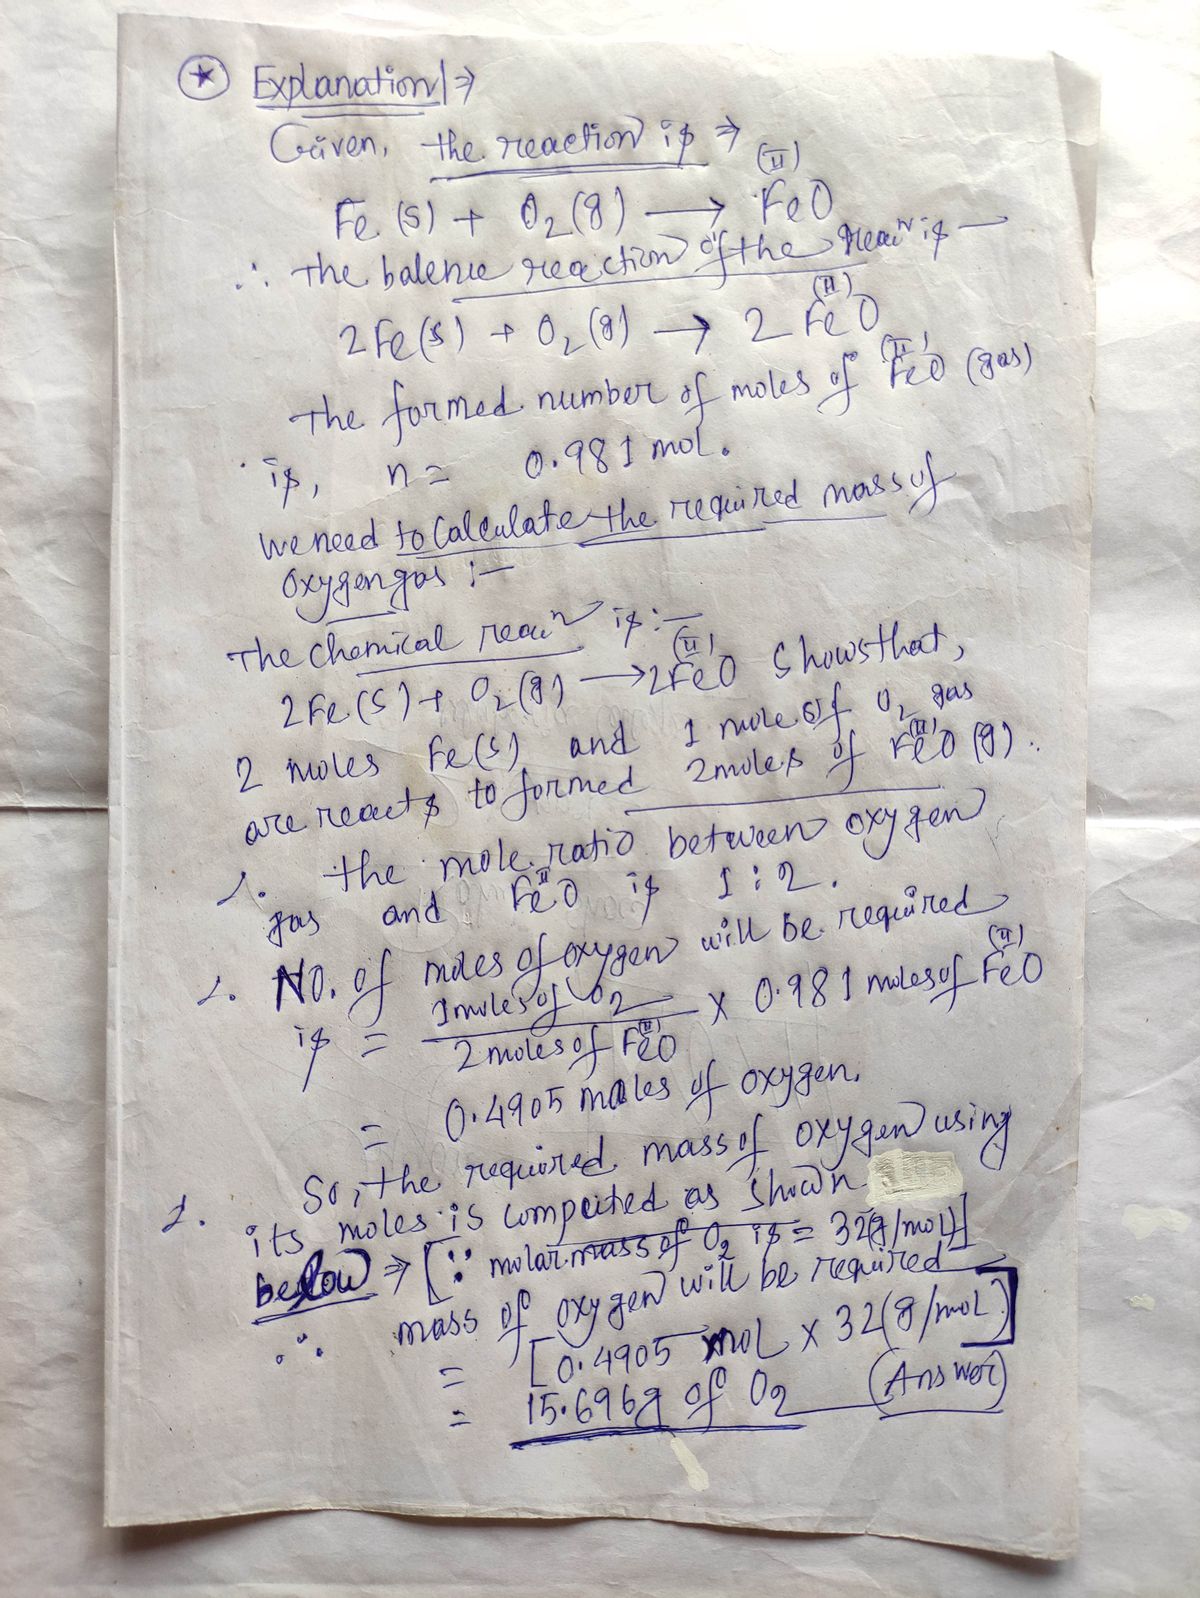 ★ Explanation|⇒
Given, the reaction is ⇒
(II)
Fe (s) + O2 (g) → FeO
∴ the balence reaction of the reacn is —
(II)
2 Fe(s) + O2 (g) → 2 FeO
The formed number of moles of (II) FeO (gas)
is, n = 0.981 mol.
we need to Calculate the required mass of
Oxygen gas :—
The chemical reacn is :—
(II)
2 Fe (s) + O2 (g) → 2FeO Shows that,
2 moles Fe(s) and 1 mole of O2 gas
are reacts to formed 2 moles of (II) FeO (g).
∴ the mole ratio between oxygen
gas and FeIIO is 1 : 2.
∴ NO. of moles of oxygen will be required
is = 1 moles of O2 / 2 moles of Fe(II)O × 0.981 moles of Fe(II)O
= 0.4905 moles of oxygen.
So, the required mass of oxygen using
∴ its moles is computed as Shown
below ⇒ [∵ molar mass of O2 is = 32(g/mol)]
∴ mass of oxygen will be required
= [0.4905 mol × 32(g/mol)]
= 15.696g of O2 (Answer)